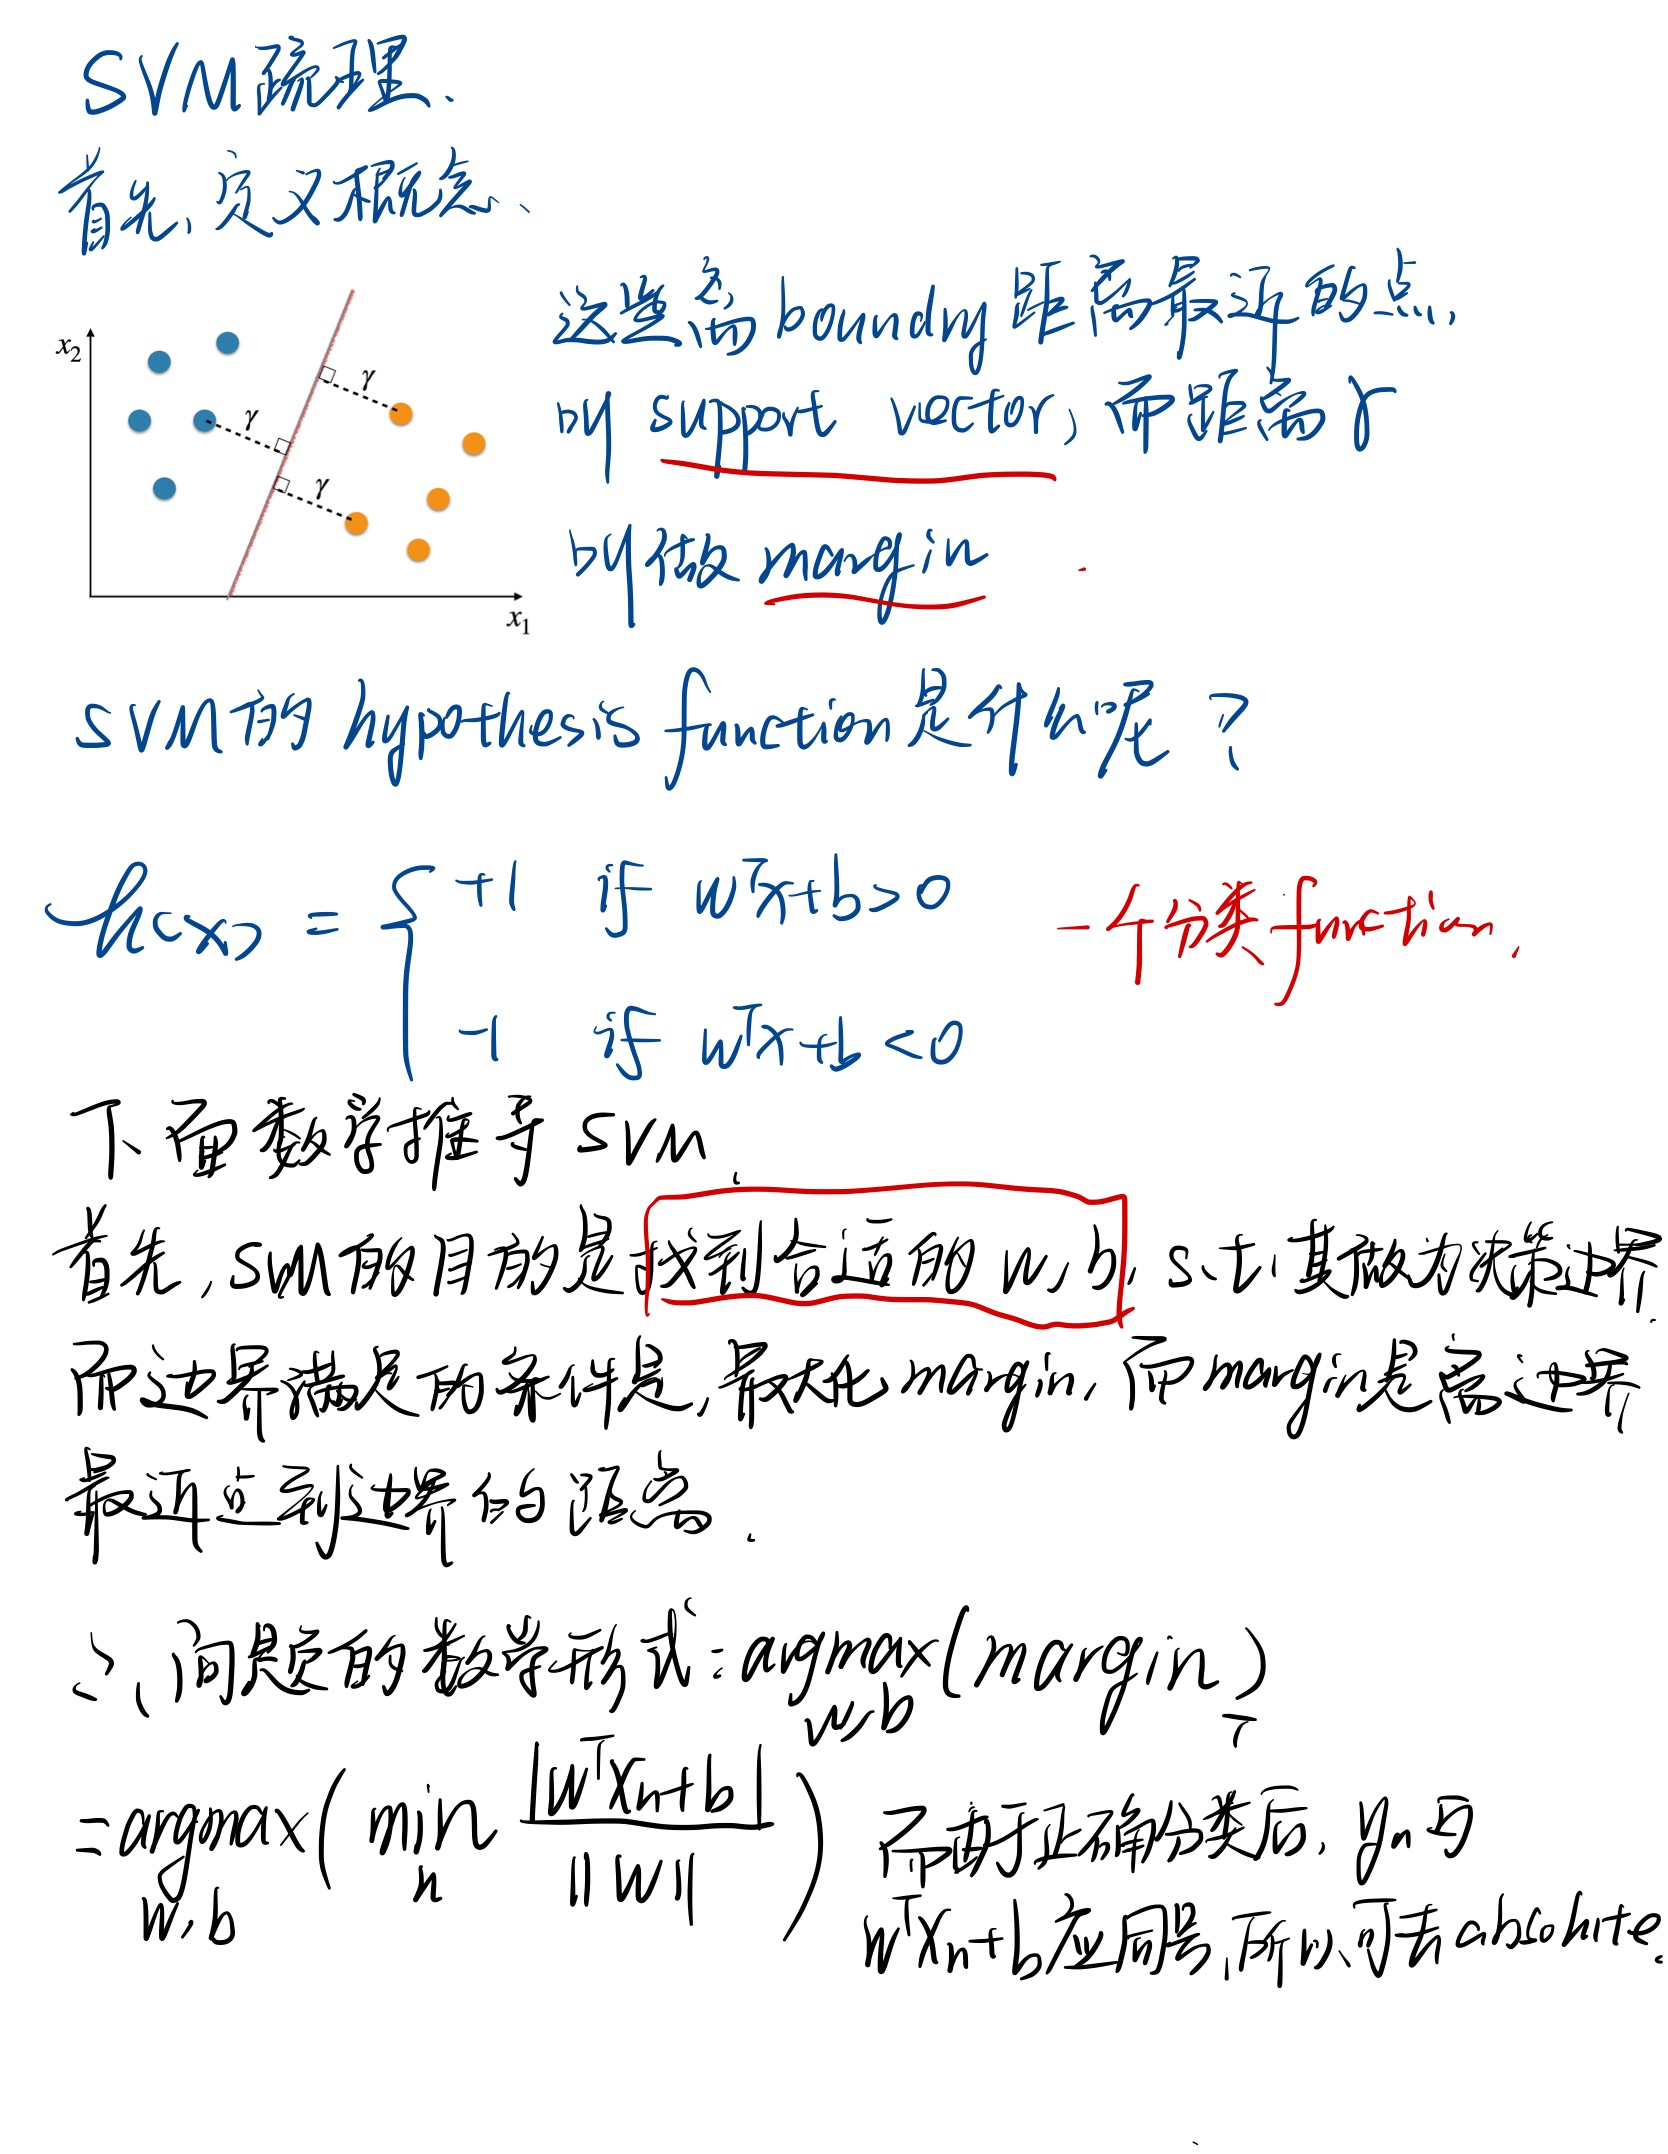 SVM疏理.
首先,定义概念、
x₂
γ
γ
γ
x₁
这些离boundry距离最近的点,
叫support vector,而距离γ
叫做margin
SVM的hypothesis function是什么呢?
h(x) = { +1 if wᵀx+b>0
-1 if wᵀx+b<0
一个分类function,
下面数学推导SVM.
首先,SVM的目的是找到合适的w,b, s.t.其做为决策边界.
而边界满足的条件是,最大化margin,而margin是离边界
最近点到边界的距离.
∴、问题的数学形式:argmax(margin)
w,b
=argmax( min |wᵀxₙ+b| / ||w|| )
w,b n
而由于正确分类后,yₙ与
wᵀxₙ+b应同号,所以可去absolute.